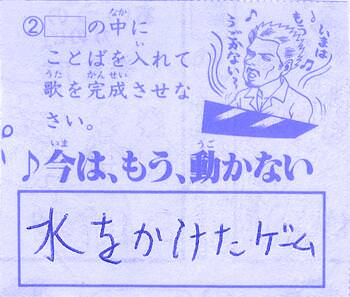 ② □の中に
ことばを入れて
歌を完成させな
さい。
いまは
もう〜
うごかない〜♪
♪今は、もう、動かない
水をかけたゲーム